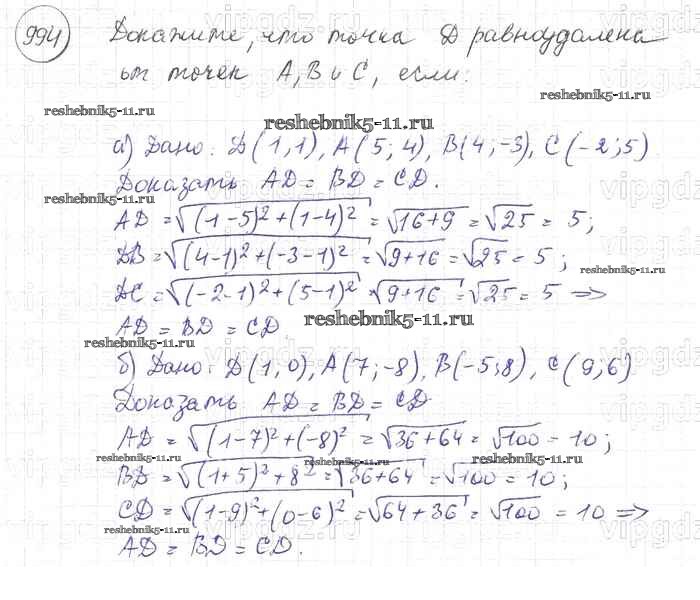 994 Докажите, что точка D равноудалена
от точек A, B и C, если:
reshebnik5-11.ru
reshebnik5-11.ru
reshebnik5-11.ru
а) Дано: D(1,1), A(5; 4), B(4;-3), C(-2;5)
Доказать AD = BD = CD.
reshebnik5-11.ru
AD = √(1-5)²+(1-4)² = √16+9 = √25 = 5;
DB = √(4-1)²+(-3-1)² = √9+16 = √25 = 5;
reshebnik5-11.ru
DC = √(-2-1)²+(5-1)² = √9+16 = √25 = 5 =>
AD = BD = CD
reshebnik5-11.ru
reshebnik5-11.ru
б) Дано: D(1,0), A(7;-8), B(-5;8), C(9;6)
Доказать AD = BD = CD
AD = √(1-7)²+(-8)² = √36+64 = √100 = 10;
reshebnik5-11.ru
BD = √(1+5)²+8² = √36+64 = √100 = 10;
CD = √(1-9)²+(0-6)² = √64+36 = √100 = 10 =>
reshebnik5-11.ru
AD = BD = CD.